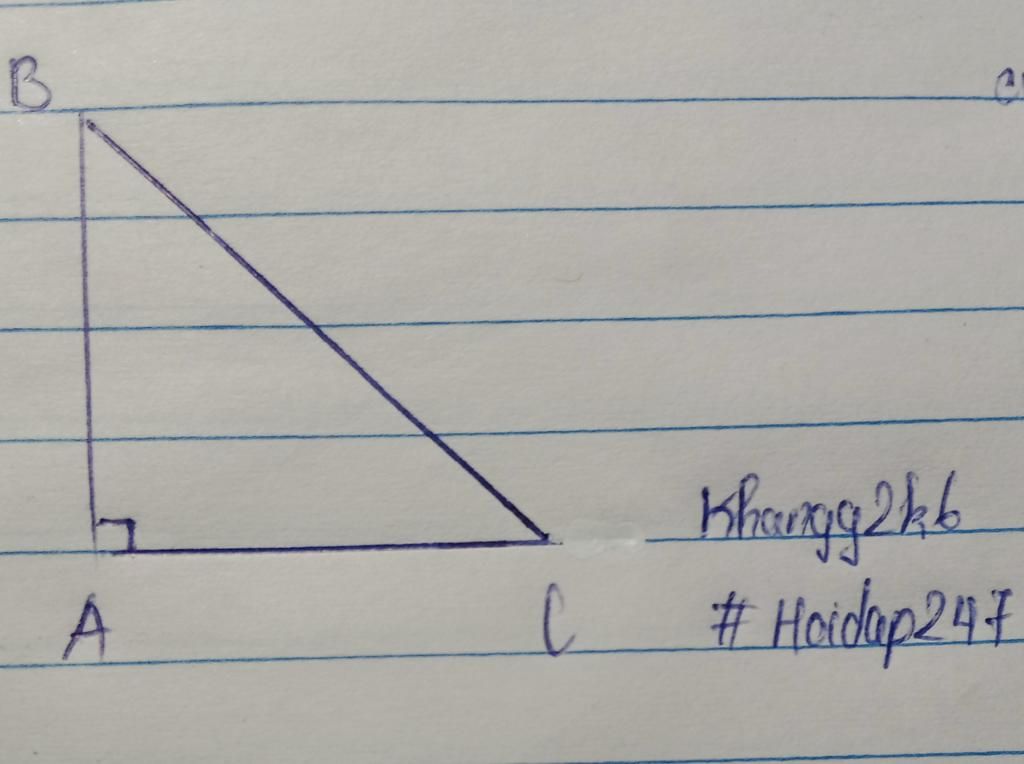 B
A
C
Khangg2k6
# Hoidap247